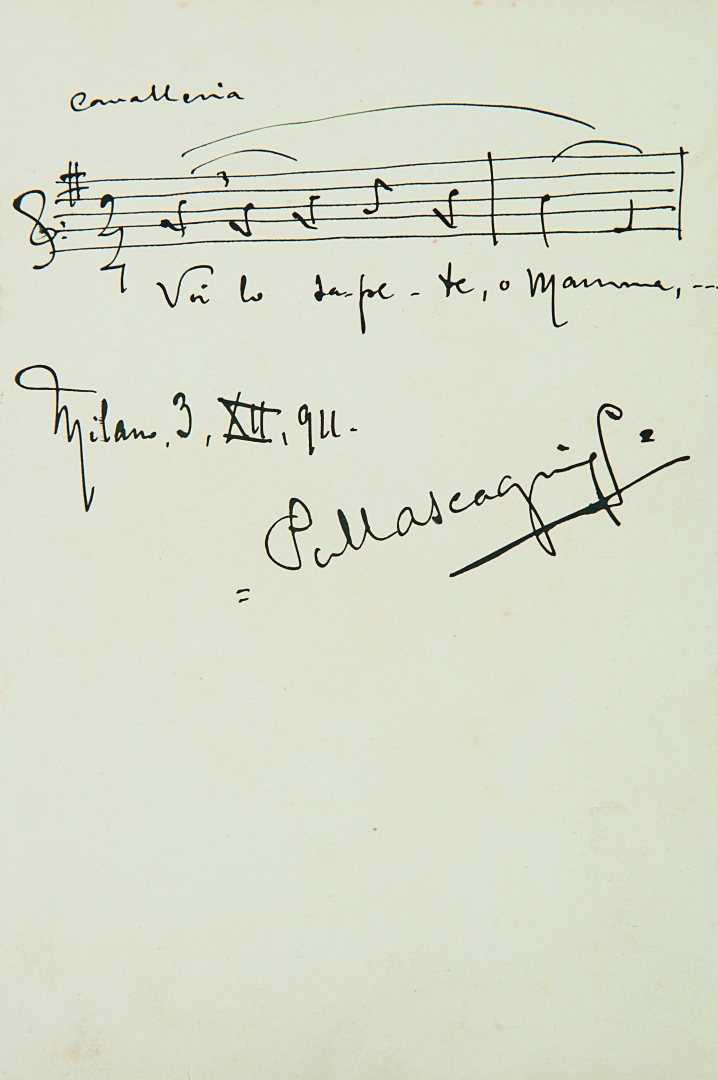 Cavalleria
3
2 4
Voi lo sa-pe-te, o Mamma, --
Milano, 3, XII, 911.
P. Mascagni